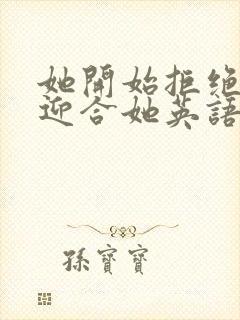 她開始拒絕
迎合她英語
孫寶寶